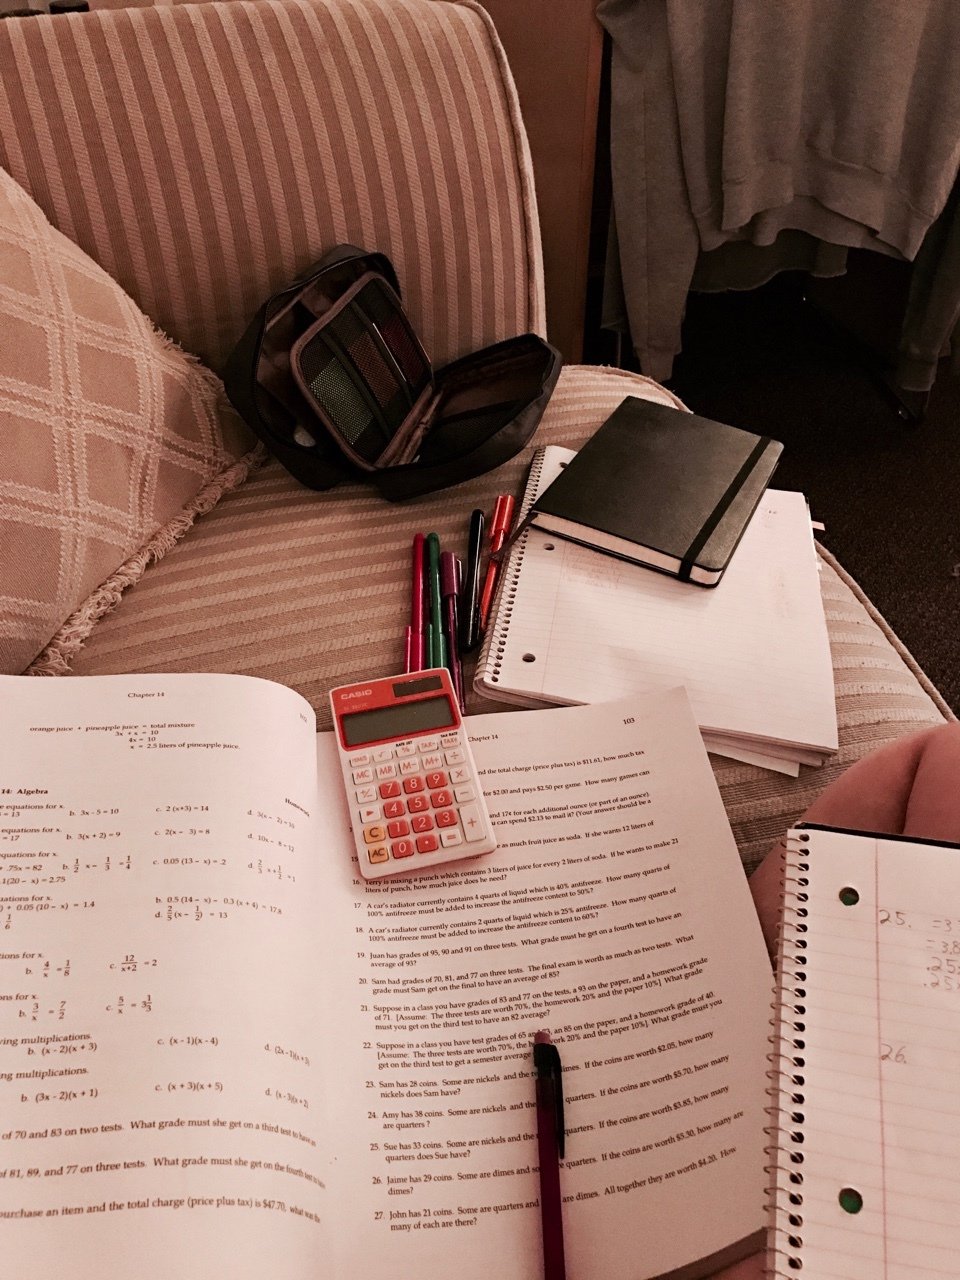 Chapter 14
orange juice + pineapple juice = total mixture
3x + x = 10
4x = 10
x = 2.5 liters of pineapple juice.
14: Algebra
Homework
equations for x.
= 13 b. 3x - 5 = 10 c. 2 (x+3) = 14 d. 3(x - 2) = 16
equations for x.
= 17 b. 3(x + 2) = 9 c. 2(x - 3) = 8
equations for x.
.75x = 82 b. 1/2 x - 1/3 = 1/4 c. 0.05 (13 - x) = .2 d. 2/3 x + 1/2 = 1
.1(20 - x) = 2.75
ations for x.
+ 0.05 (10 - x) = 1.4 b. 0.5 (14 - x) - 0.3 (x + 4) = 17.8
1/6 d. 2/5 (x - 1/2) = 13
ions for x.
b. 4/x = 1/8 c. 12/x+2 = 2
ons for x.
b. 3/x = 7/2 c. 5/x = 3 1/3
ving multiplications.
b. (x - 2)(x + 3) c. (x - 1)(x - 4) d. (2x - 1)(x + 3)
ng multiplications.
b. (3x - 2)(x + 1) c. (x + 3)(x + 5) d. (x - 3)(x + 2)
of 70 and 83 on two tests. What grade must she get on a third test to have
of 81, 89, and 77 on three tests. What grade must she get on the fourth test to
purchase an item and the total charge (price plus tax) is $47.70, what was the
CASIO
MC MR M- M+ ÷
7 8 9 ×
4 5 6 −
C 1 2 3 +
AC 0 · =
Chapter 14 103
nd the total charge (price plus tax) is $11.61, how much tax
for $2.00 and pays $2.50 per game. How many games can
and 17¢ for each additional ounce (or part of an ounce).
u can spend $2.13 to mail it? (Your answer should be a
as much fruit juice as soda. If she wants 12 liters of
16. Terry is mixing a punch which contains 3 liters of juice for every 2 liters of soda. If he wants to make 21
liters of punch, how much juice does he need?
17. A car's radiator currently contains 4 quarts of liquid which is 40% antifreeze. How many quarts of
100% antifreeze must be added to increase the antifreeze content to 50%?
18. A car's radiator currently contains 2 quarts of liquid which is 25% antifreeze. How many quarts of
100% antifreeze must be added to increase the antifreeze content to 60%?
19. Juan has grades of 95, 90 and 91 on three tests. What grade must he get on a fourth test to have an
average of 93?
20. Sam had grades of 70, 81, and 77 on three tests. The final exam is worth as much as two tests. What
grade must Sam get on the final to have an average of 85?
21. Suppose in a class you have grades of 83 and 77 on the tests, a 93 on the paper, and a homework grade
of 71. [Assume: The three tests are worth 70%, the homework 20% and the paper 10%] What grade
must you get on the third test to have an 82 average?
22. Suppose in a class you have test grades of 65 and, an 85 on the paper, and a homework grade of 40.
[Assume: The three tests are worth 70%, the work 20% and the paper 10%] What grade must you
get on the third test to get a semester average
23. Sam has 28 coins. Some are nickels and the dimes. If the coins are worth $2.05, how many
nickels does Sam have?
24. Amy has 38 coins. Some are nickels and the quarters. If the coins are worth $5.70, how many
are quarters ?
25. Sue has 33 coins. Some are nickels and the quarters. If the coins are worth $3.85, how many
quarters does Sue have?
26. Jaime has 29 coins. Some are dimes and quarters. If the coins are worth $5.30, how many are
dimes?
27. John has 21 coins. Some are quarters and are dimes. All together they are worth $4.20. How
many of each are there?
25.
26.